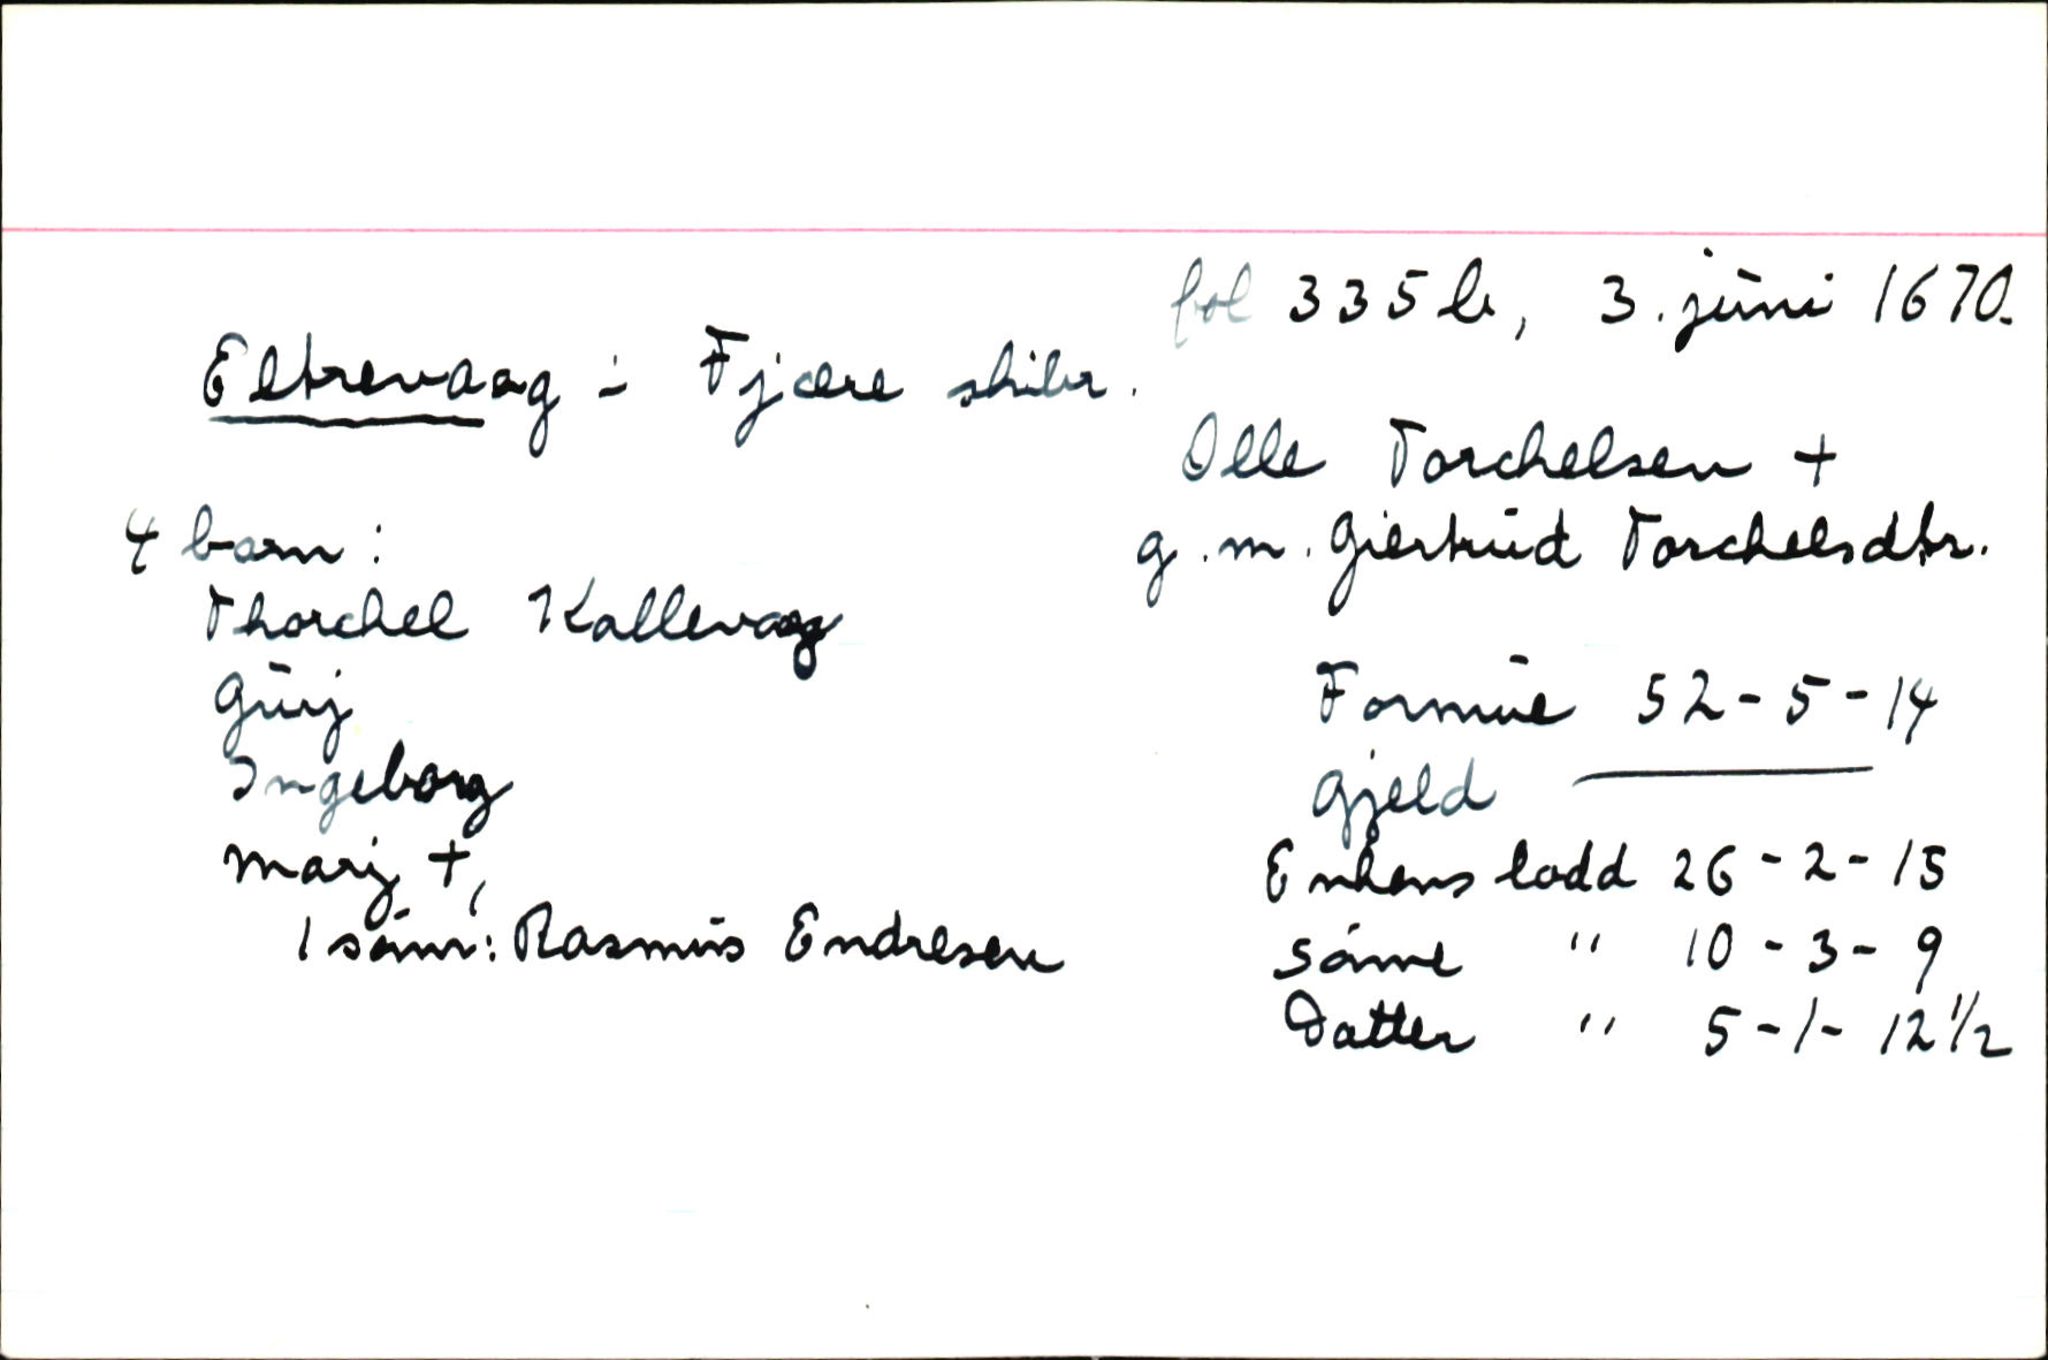 fol 335 b, 3. juni 1670.
Eltrevaag i Fjære skibr.
Olle Torchelsen +
g.m. Giertrud Torchelsdtr.
4 barn:
Thorchel Kallevaag
Gurj
Ingeborg
Marj +,
1 sønn: Rasmus Endresen
Formue 52 - 5 - 14
Gjeld ———
Enkens lodd 26 - 2 - 15
Sønne " 10 - 3 - 9
Datter " 5 - 1 - 12 1/2